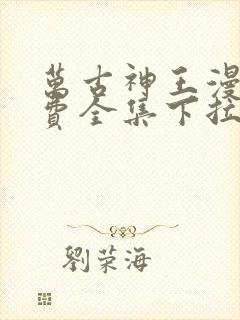 萬古神王漫
費全集下拉
劉荣海